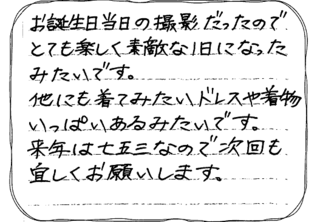 お誕生日当日の撮影だったので
とても楽しく素敵な1日になった
みたいです。
他にも着てみたいドレスや着物
いっぱいあるみたいです。
来年は七五三なので次回も
宜しくお願いします。